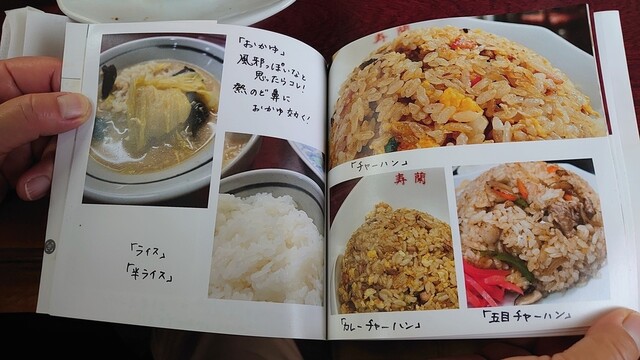 「おかゆ」
風邪っぽいなと
思ったらコレ!
熱のど鼻に
おかゆ効く!
「ライス」
「半ライス」
寿蘭
「チャーハン」
寿蘭
「カレーチャーハン」
「五目チャーハン」